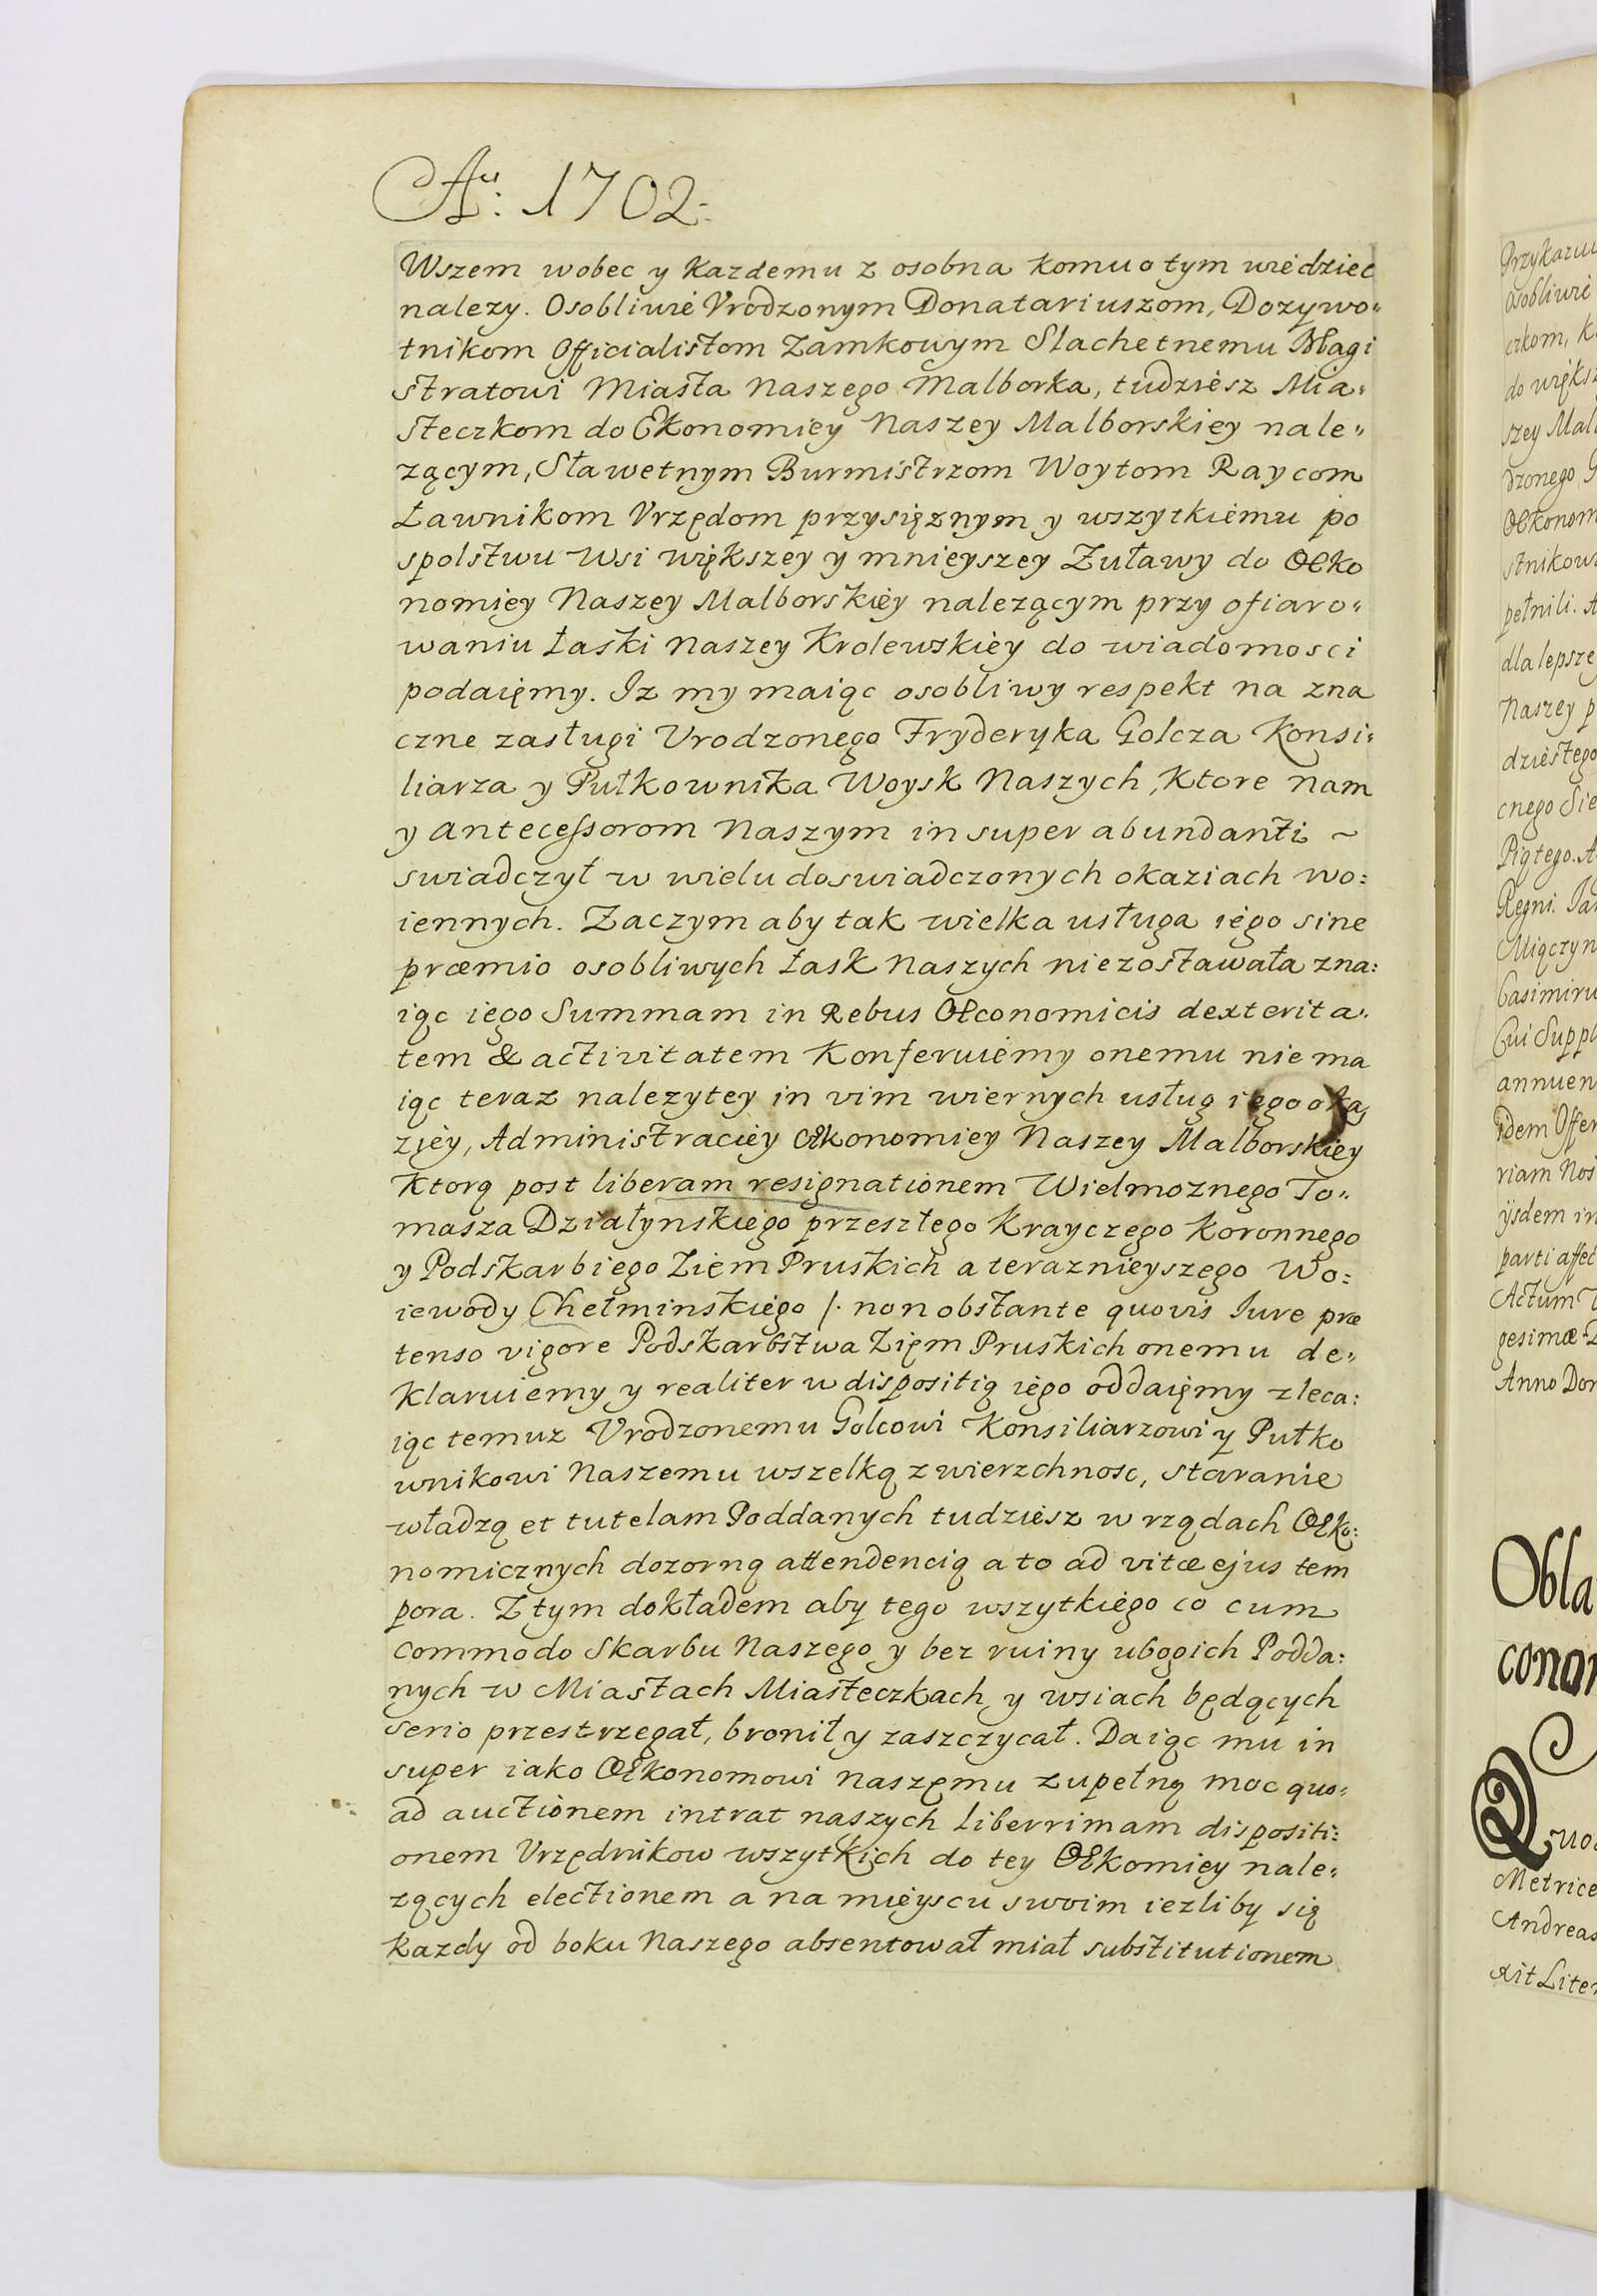 Aº: 1702:
Wszem wobec y Kazdemu z osobna komu o tym wiedziec
nalezy. Osobliwie Vrodzonym Donatariuszom, Dozywo„
tnikom Officialistom Zamkowym Slachetnemu Magi
stratowi Miasta Naszego Malborka, tudziesz Mia„
steczkom do Œkonomiey Naszey Malborskiey nale„
zącym, Sławetnym Burmistrzom Woytom Raycom
Ławnikom Vrzędom przysięznym y wszytkiemu po
spolstwu Wsi większey y mnieyszey Zuławy do Œko
nomiey Naszey Malborskiey nalezącym przy ofiaro„
waniu Łaski Naszey Krolewskiey do wiadomosci
podaięmy. Iz my maiąc osobliwy respekt na zna
czne zasługi Vrodzonego Fryderyka Golcza Konsi„
liarza y Pułkownika Woysk Naszych, Ktore nam
y antecessorom Naszym in super abundanti ~
swiadczył w wielu doswiadczonych okaziach wo:
iennych. Zaczym aby tak wielka usługa iego sine
præmio osobliwych Łask Naszych niezostawała zna:
iąc iego Summam in Rebus Œconomicis dexterita„
tem & activitatem Konferuiemy onemu nie ma
iąc teraz nalezytey in vim wiernych usług iego oka
ziey, Administraciey Œkonomiey Naszey Malborskiey
Ktorą post liberam resignationem Wielmoznego To„
masza Działynskiego przeszłego Krayczego Koronnego
y Podskarbiego Ziem Pruskich a teraznieyszego Wo:
iewody Chełminskiego /. non obstante quovis Iure præ
tenso vigore Podskarbstwa Zięm Pruskich onemu de„
Klaruiemy y realiter w dispositią iego oddaięmy zleca:
iąc temuz Vrodzonemu Golcowi Konsiliarzowi y Pułko
wnikowi Naszemu wszelką zwierzchnosc, staranie
władzą et tutelam Poddanych tudziesz w rządach Œko:
nomicznych dozorną attendencią a to ad vitæ ejus tem
pora. Z tym dokładem aby tego wszytkiego co cum
commodo Skarbu Naszego y bez ruiny ubogich Podda:
nych w Miastach Miasteczkach y wsiach będących
serio przestrzegał, bronił y zaszczycał. Daiąc mu in
super iako Œkonomowi naszęmu zupełną moc quo„
ad auctionem intrat naszych liberrimam dispositi:
onem Vrzędnikow wszytkich do tey Œkomiey nale„
zących electionem a na mieyscu swoim iezliby się
Kazdy od boku Naszego absentował miał substitutionem
Osobliwie
do większ
dla lepsze
Naszey p
Piątego. A
Casimiru
Cui Suppl
annuen
riam Nos
Actum
Anno Dor
Obla
conom
Quo
Metrice
Andreas